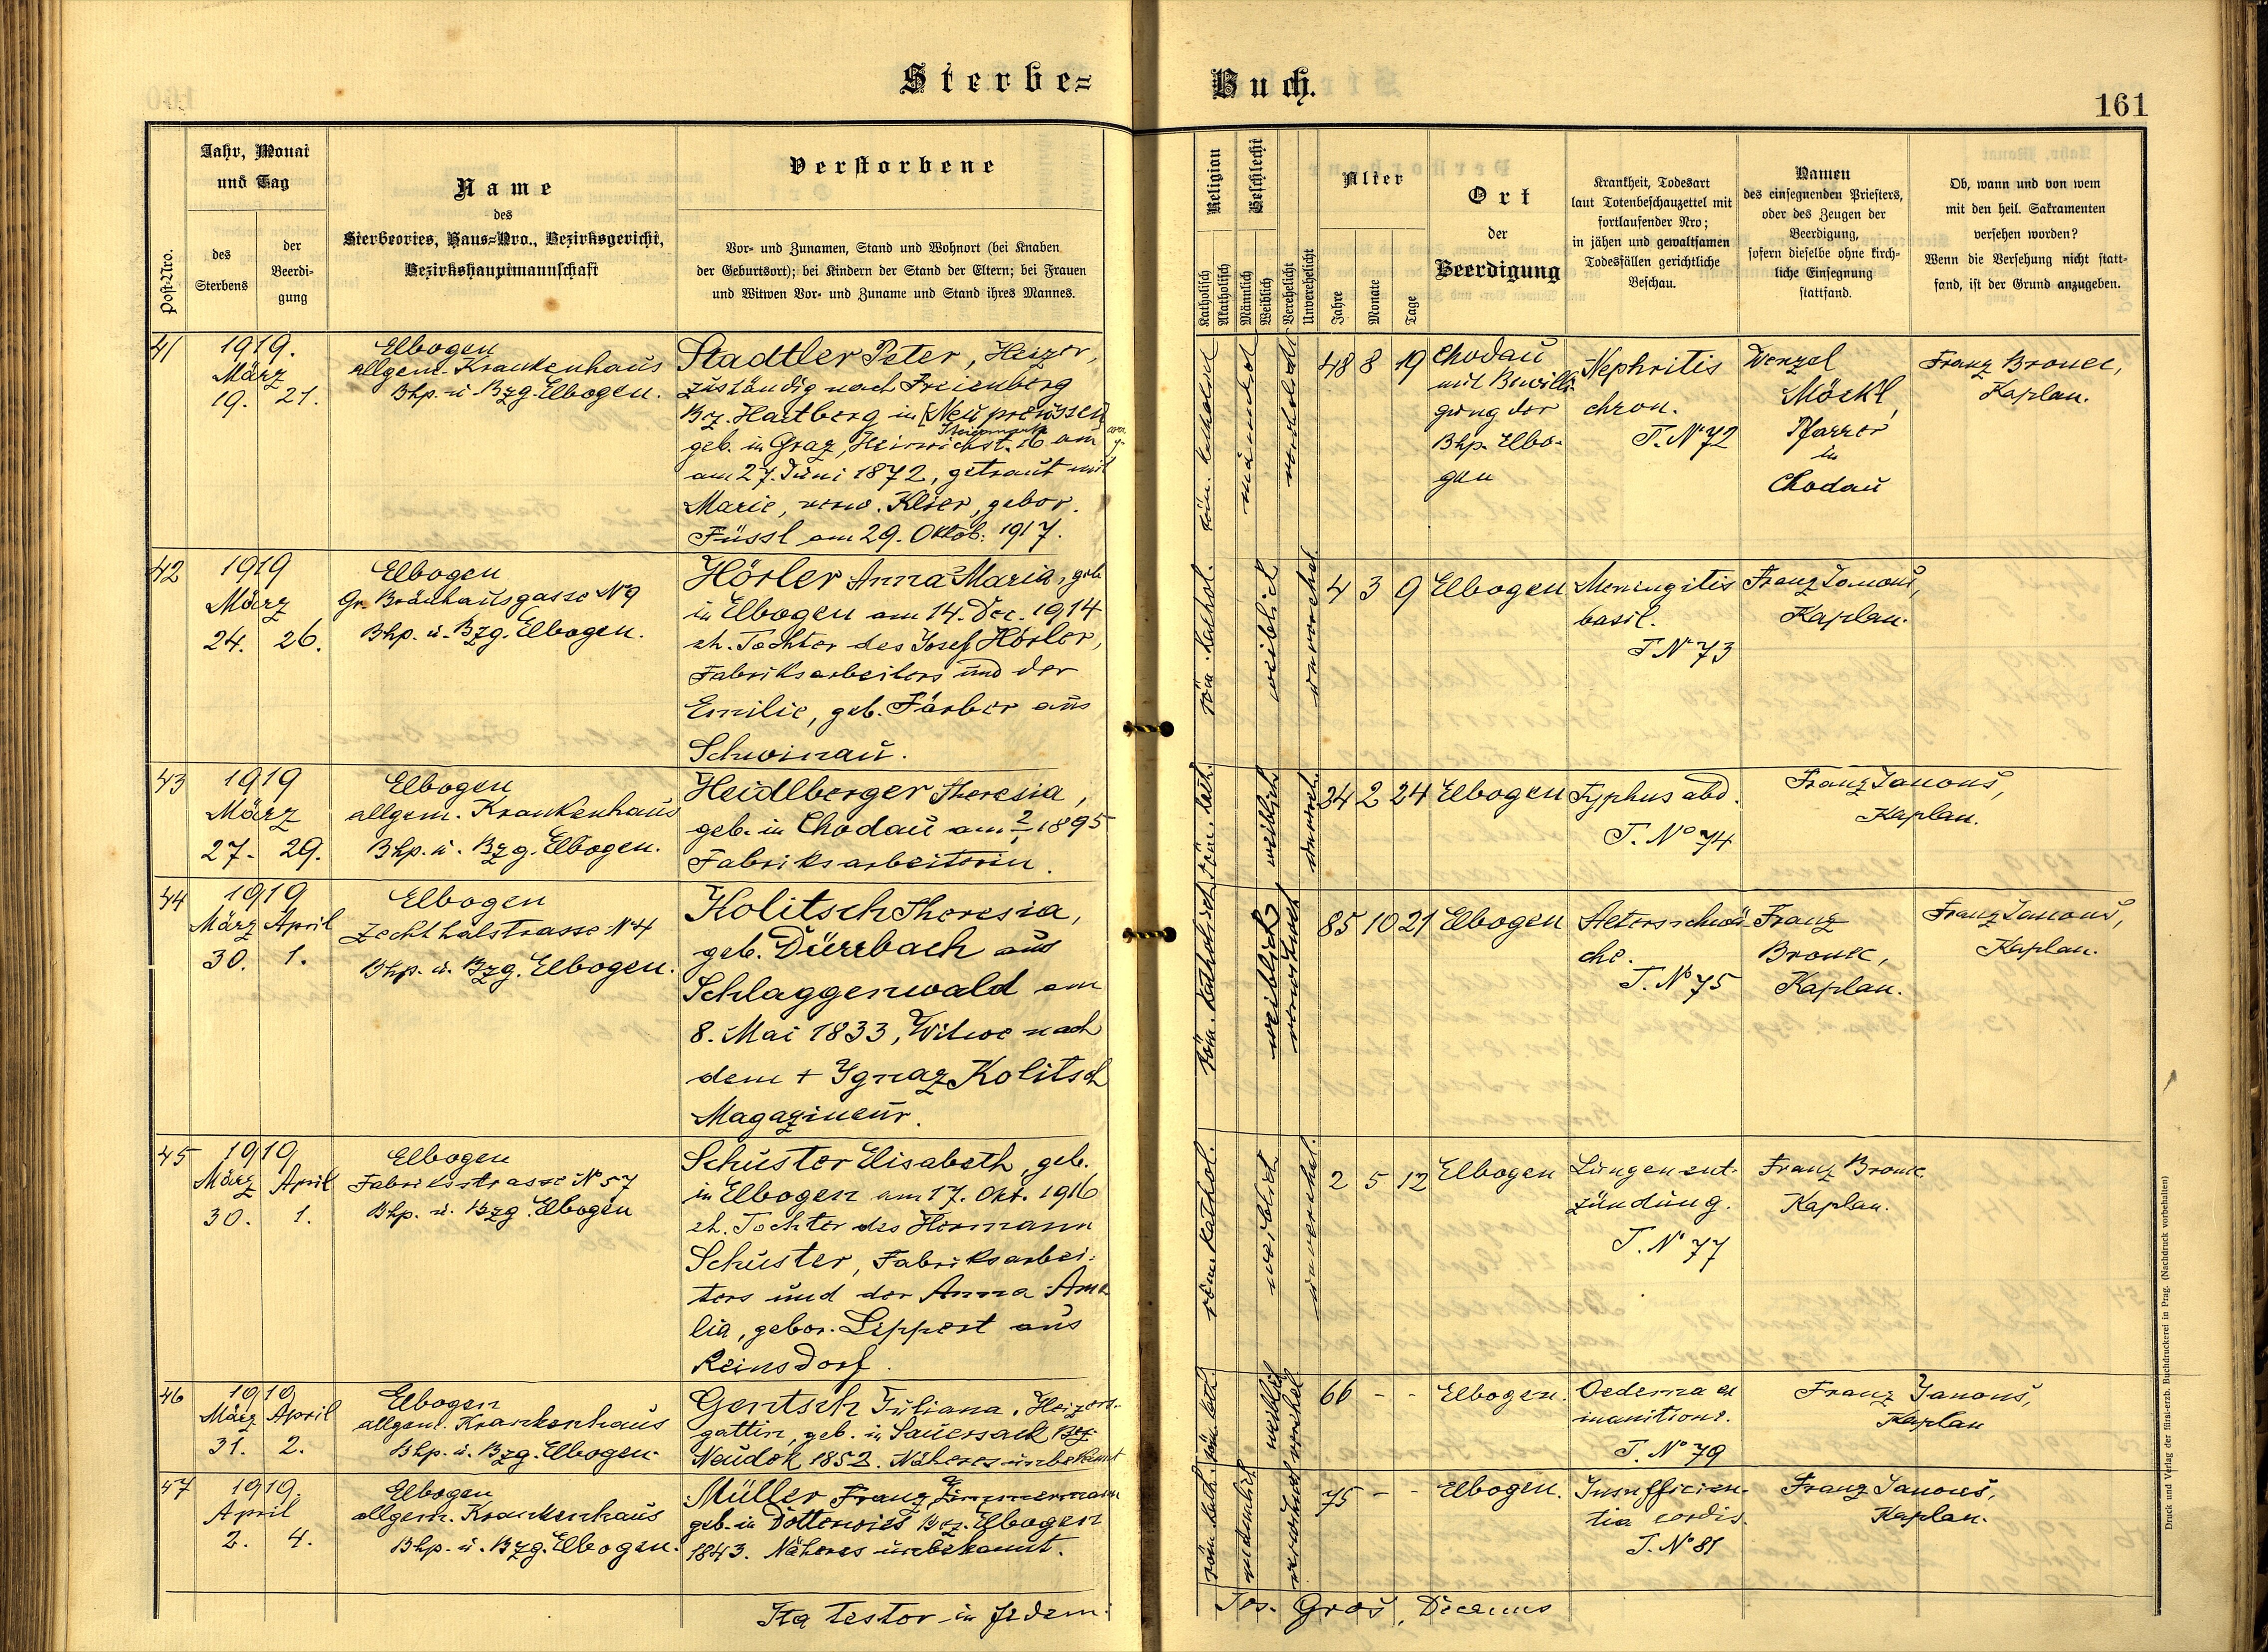 Sterbe=
Buch.
161
Post-Nro.
Jahr, Monat
und Tag
des
Sterbens
der
Beerdi-
gung
Name
des
Sterbeortes, Haus-Nro., Bezirksgericht,
Bezirkshauptmannschaft
Verstorbene
Vor- und Zunamen, Stand und Wohnort (bei Knaben
der Geburtsort); bei Kindern der Stand der Eltern; bei Frauen
und Witwen Vor- und Zuname und Stand ihres Mannes.
Religion
Katholisch
Akatholisch
Geschlecht
Männlich
Weiblich
Verehelicht
Unverehelicht
Alter
Jahre
Monate
Tage
Ort
der
Beerdigung
Krankheit, Todesart
laut Totenbeschauzettel mit
fortlaufender Nro;
in jähen und gewaltsamen
Todesfällen gerichtliche
Beschau.
Namen
des einsegnenden Priesters,
oder des Zeugen der
Beerdigung,
sofern dieselbe ohne kirch-
liche Einsegnung
stattfand.
Ob, wann und von wem
mit den heil. Sakramenten
versehen worden?
Wenn die Versehung nicht statt-
fand, ist der Grund anzugeben.
41
1919.
März
19. 21.
Elbogen
allgem. Krankenhaus
Bhp. u Bzg. Elbogen.
Stadtler Peter, Heizer,
zuständig nach Freienberg
Bz. Hartberg in [Neu preussen]
Steiermark
geb. in Graz, Heinrichst. 16 am
am 27. Juni 1872, getraut mit
Marie, verw. Klier, gebor.
Füssl am 29. Oktob. 1917.
röm. katholisch
männlich
verehelicht
48 8 19
Chodau
mit Bewilli-
gung der
Bhp. Elbo-
gen
Nephritis
chron.
T. N 72
Wenzel
Möckl,
Pfarrer
in
Chodau
Franz Bronec,
Kaplan.
42
1919
März
24. 26.
Elbogen
Gr. Bräuhausgasse N 9
Bhp. u. Bzg. Elbogen.
Hörler Anna Maria, geb
in Elbogen am 14. Dec. 1914
eh. Tochter des Josef Hörler,
Fabriksarbeiters und der
Emilie, geb. Färber aus
Schwinau.
röm. kathol.
weiblich
unverehel.
4 3 9
Elbogen
Meningitis
basil.
T N 73
Franz Janouš,
Kaplan.
43
1919
März
27. 29.
Elbogen
allgem. Krankenhaus
Bhp. u. Bzg. Elbogen.
Heidlberger Theresia,
geb. in Chodau am ? 1895
Fabriksarbeiterin.
röm. kath.
weiblich
unverehel.
34 2 24
Elbogen
Typhus abd.
T. No 74
Franz Janouš,
Kaplan.
44
1919
März April
30. 1.
Elbogen
Zechthalstrasse N 4
Bhp. u. Bzg. Elbogen.
Kolitsch Theresia,
geb. Dürrbach aus
Schlaggenwald am
8. Mai 1833, Witwe nach
dem + Ignaz Kolitsch
Magazineur.
röm. katholisch
weiblich
verwitwet
85 10 21
Elbogen
Altersschwä-
che.
T. No 75
Franz
Bronec,
Kaplan.
Franz Janouš,
Kaplan.
45
1919
März April
30. 1.
Elbogen
Fabriksstrasse No 57
Bhp. u. Bzg. Elbogen
Schuster Elisabeth, geb.
in Elbogen am 17. Okt. 1916
eh. Tochter des Hermann
Schuster, Fabriksarbei-
ters und der Anna Ama
lia, gebor. Lippert aus
Reinsdorf.
röm. kathol.
weiblich
unverehel.
2 5 12
Elbogen
Lungenent-
zündung.
T. No 77
Franz Bronec
Kaplan.
46
1919
März April
31. 2.
Elbogen
allgem. Krankenhaus
Bhp. u. Bzg. Elbogen.
Gentsch Juliana, Heizers-
gattin, geb. in Sauersack Bez.
Neudek 1852. Näheres unbekannt
röm. kath.
weiblich
verehel
66 - -
Elbogen.
Oedema ex
inanitione.
T. No 79
Franz Janouš,
Kaplan
47
1919.
April
2. 4.
Elbogen
allgem. Krankenhaus
Bhp. u. Bzg. Elbogen.
Müller Franz Zimmermann
geb. in Dottenwies Bez. Elbogen
1843. Näheres unbekannt.
röm. kath.
männlich
verwitwet
75 - -
Elbogen.
Insufficien-
tia cordis.
T. No 81
Franz Janouš,
Kaplan.
Ita testor in fidem:
Jos. Groš, Decanus
Druck und Verlag der fürst-erzb. Buchdruckerei in Prag. (Nachdruck vorbehalten)